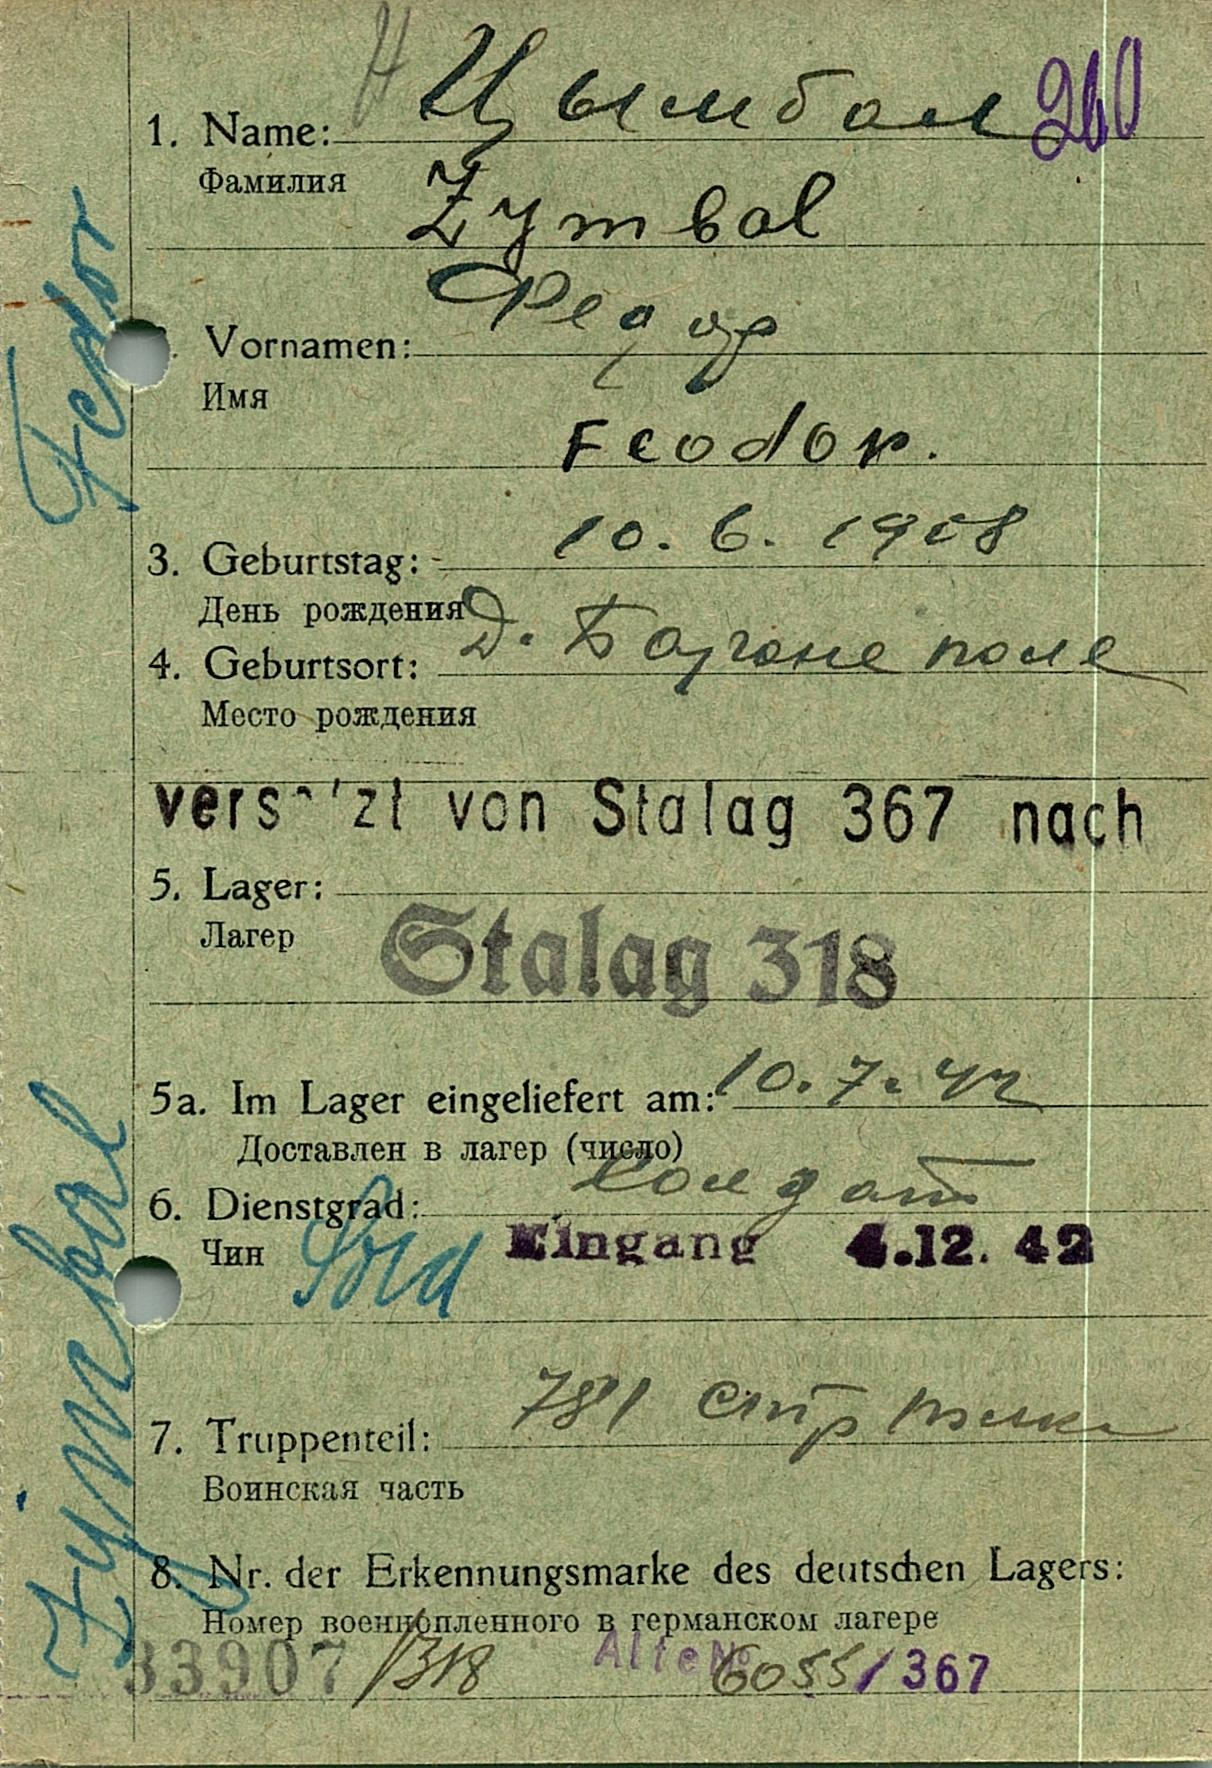 Н Цымбал 260
1. Name:
Фамилия
Zymbal
Федор
Vornamen:
Имя
Feodor.
3. Geburtstag: 10. 6. 1908
День рождения
4. Geburtsort: Д. поле
Место рождения
von Stalag 367 nach
5. Lager:
Лагер
Stalag 318
5a. Im Lager eingeliefert am: 10. 7. 42
Доставлен в лагер (число)
6. Dienstgrad: солдат
Чин Sold Eingang 4.12. 42
7. Truppenteil: 781 стр
Воинская часть
8. Nr. der Erkennungsmarke des deutschen Lagers:
Номер военнопленного в германском лагере
33907 /318 Alte No 6055/367
Zymbal Fedor